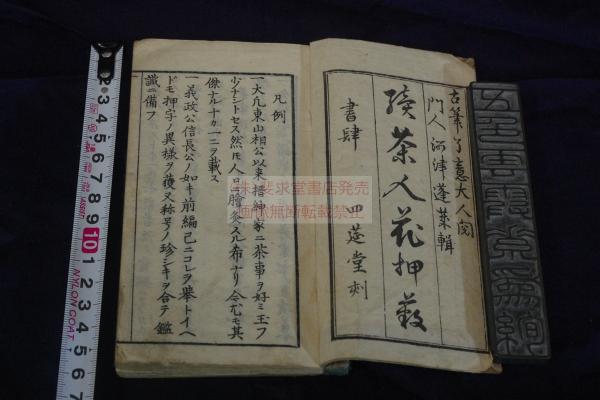 古筆了意大人閲
門人河津蓬莱輯
續茶人花押藪
書肆 四莚堂刻
凡例
一大凢東山相公以来搢紳家ニ茶事ヲ好ミ玉フ
少ナシトセス然𪜈人口ニ膾炙スル布ナリ今尤モ其
傑ナル十カ一二ヲ載ス
一義政公信長公ノ如キ前編已ニコレヲ擧トイヘ
ドモ押字ノ異様ヲ獲又称号ノ珍シキヲ合テ鑑
識ニ備フ
株式 求堂書店発売
画像無断転載禁止
2 3 4 5 6 7 8 9 10 1 2 3 4 5 6 7
NYLON COAT